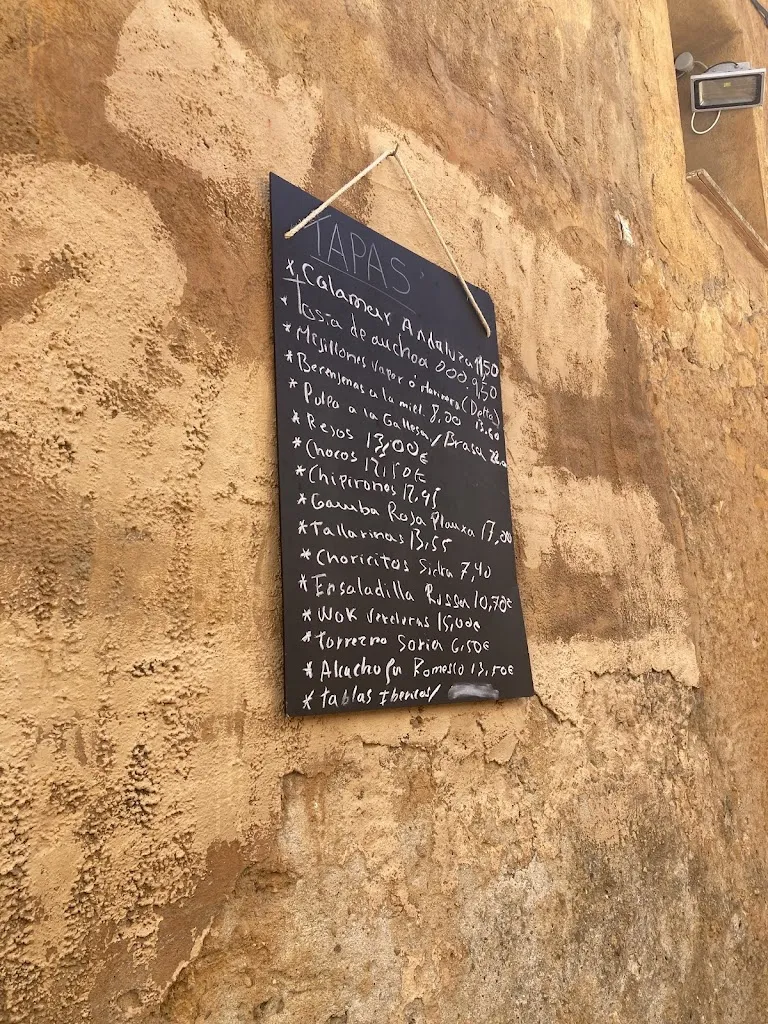 TAPAS
* Calamar Andaluza 11,50
* Tosta de anchoa 9,50
* Mejillones vapor ó marinera (Delta) 13.60
* Berenjenas a la miel. 8,20
* Pulpo a la Gallega / Brasa
* Rejos 13,00€
* Chocos 12,50€
* Chipirones 12,95
* Gamba Roja Plancha 17,00
* Tallarinas 13,55
* Choricitos Sidra 7,90
* Ensaladilla Russa 10,70€
* Wok verduras 15,00€
* Torrezno Soria 6,50€
* Alcachofa Romesco 13,50€
* tablas Ibericas/